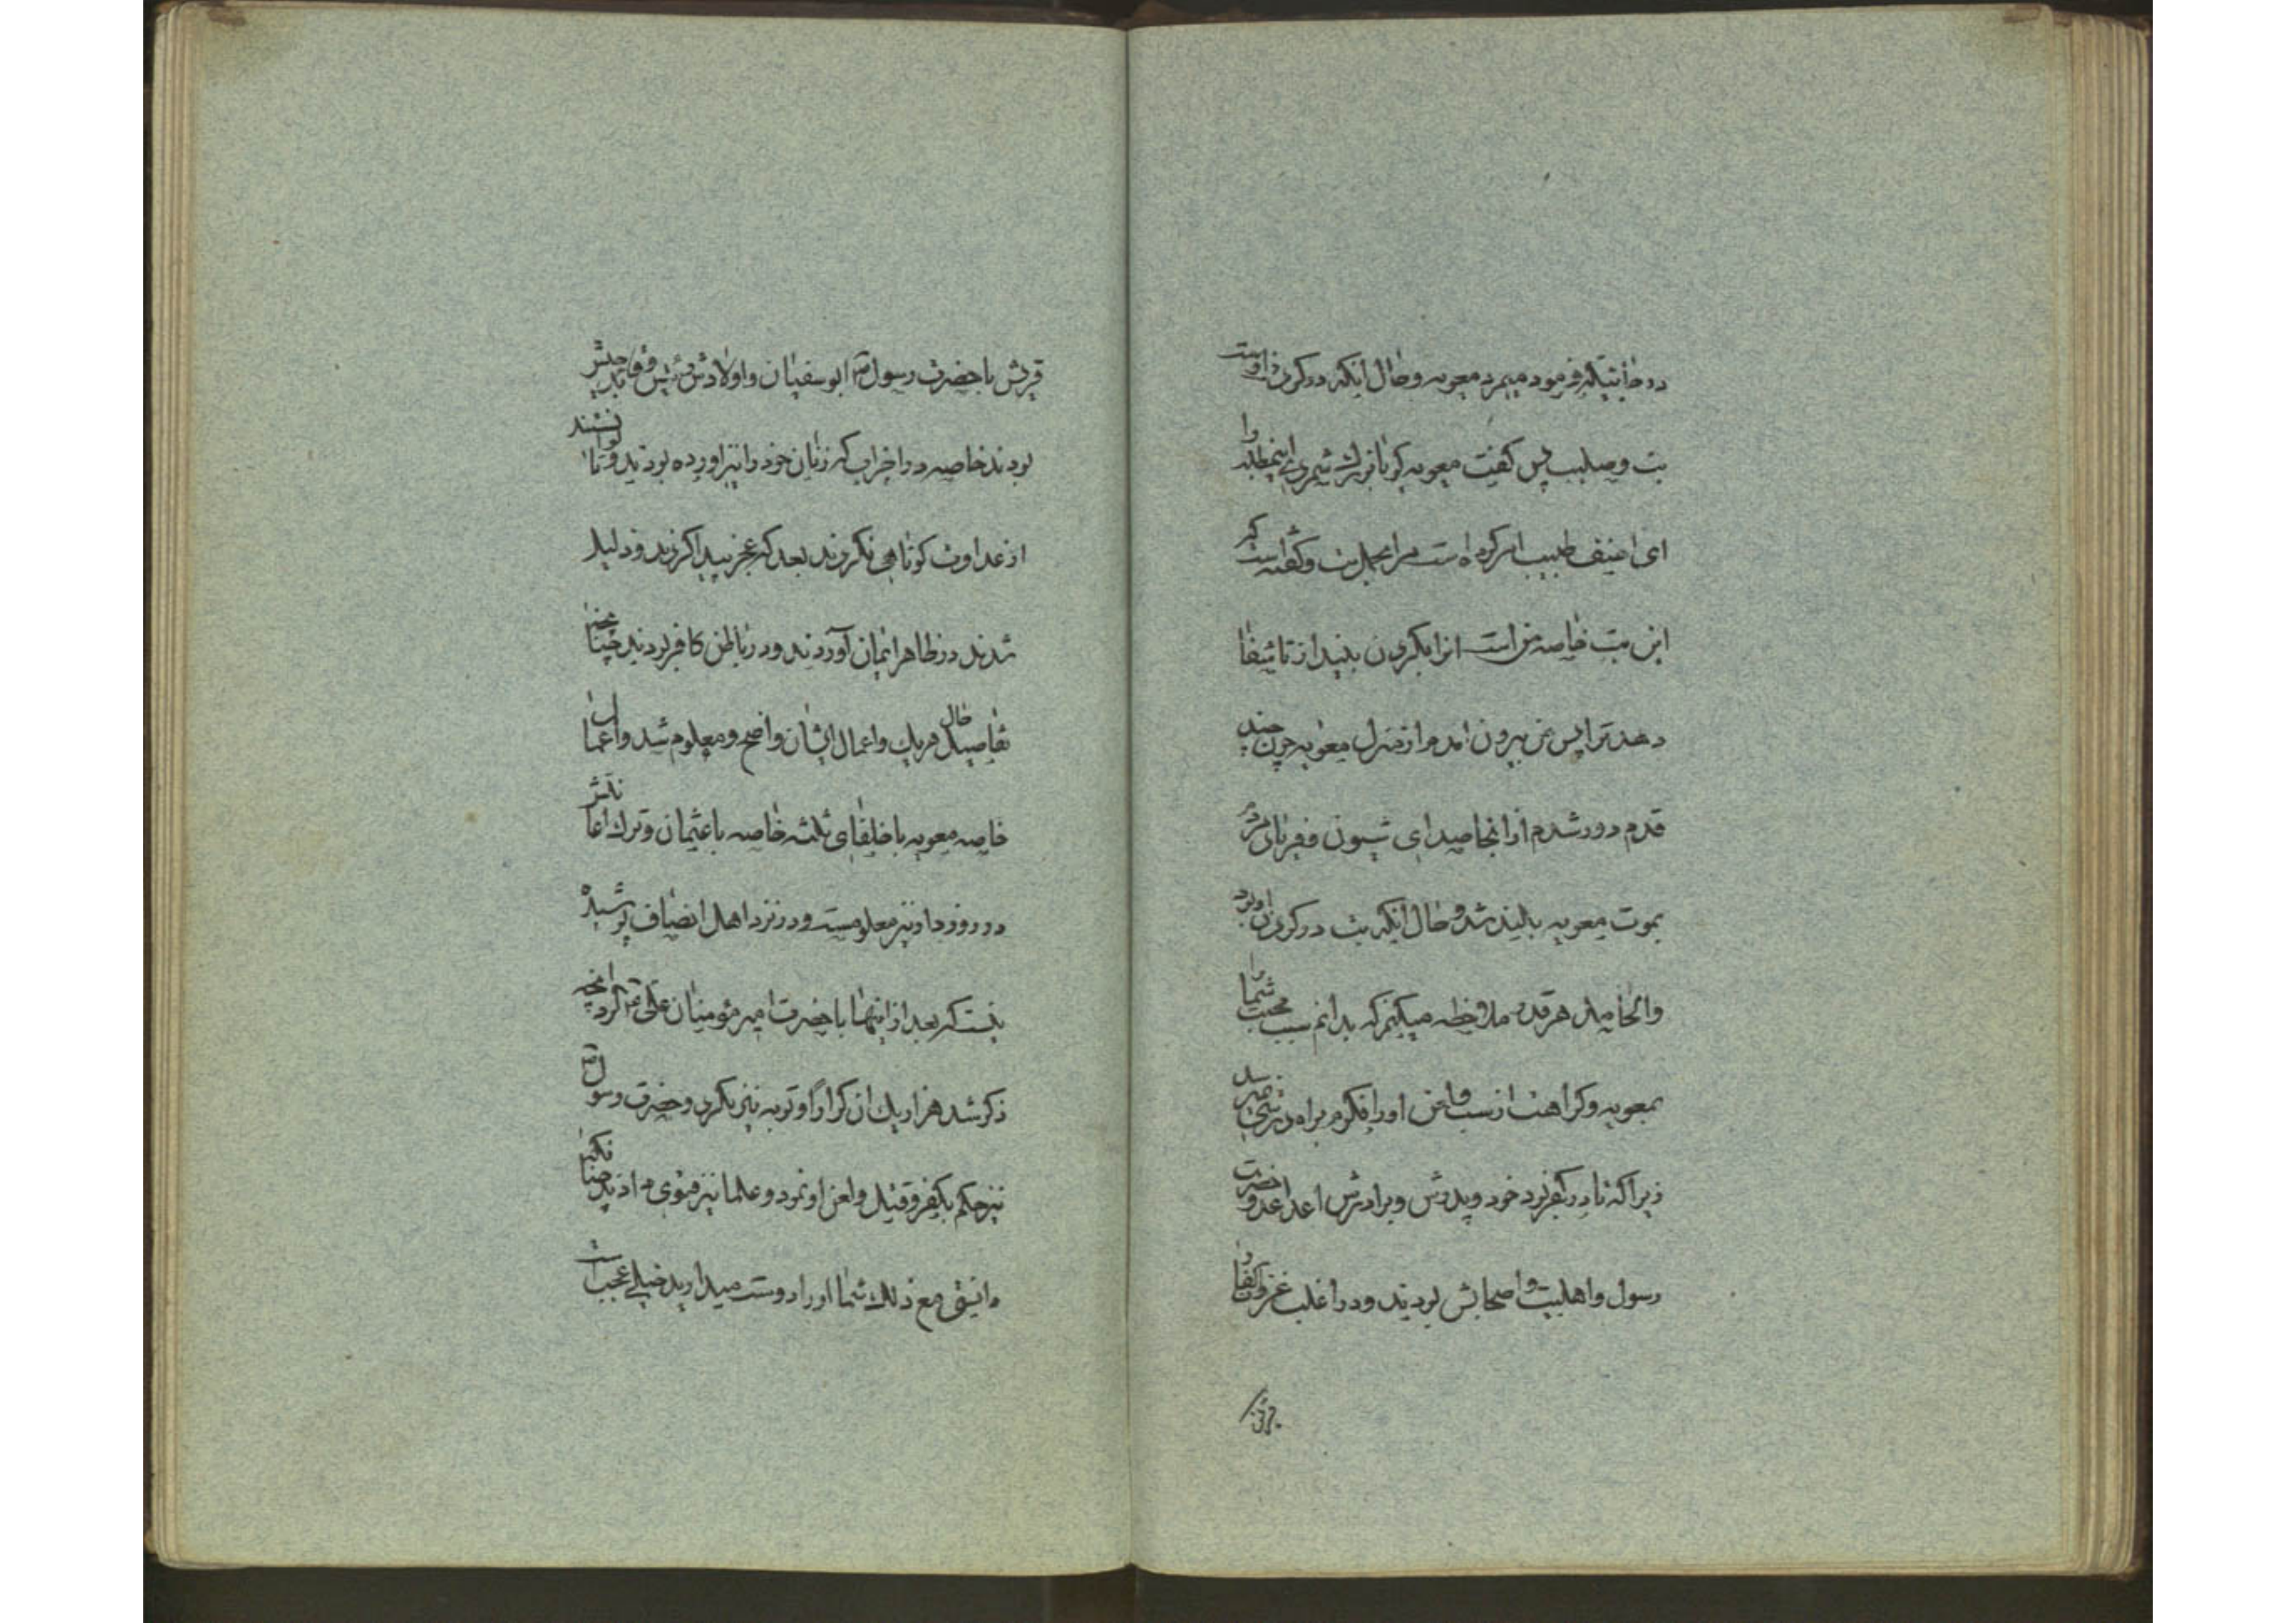 در حالتیکه فرمود میمرد معویه و حال آنکه در گردن اوست
بت و صلیب پس گفت معویه گویا بزرگ شمردی اینمطلب را
ای احنف طبیب امر کرده است مرا بحمل بت و گفته است که
این بت خاصه من است انرا بگردن بیند از تا شفا
دهد ترا پس من بیرون امدم از منزل معویه چون چند
قدم دور شدم از انجا صدای شیون و فریاد مردم
بموت معویه بلند شد و حال آنکه بت در گردن او بود
و الحاصل هر قدر ملاحظه میکنم که بدانم سبب محبت شما را
بمعویه و کراهت از سب و لعن او را فکرم براه درستی نمیرسد
زیرا که تا در کفر بود خود و پدرش و برادرش اعدا عدو حضرت
رسول و اهلبیت و اصحابش بودند و در اغلب غزوات کفار
قریش
قریش با حضرت رسول ص ابوسفیان و اولادش رئیس و قاید جیش
بودند خاصه در احزاب که زنان خود را نیز اورده بودند و تا توانستند
از عداوت کوتاهی نکردند بعد که عجز پیدا کردند و ذلیل
شدند در ظاهر ایمان آوردند و در باطن کافر بودند چنانچه
تفاصیل حال هر یک و اعمال ایشان واضح و معلوم شد و اعمال
خاصه معویه با خلفای ثلثه خاصه با عثمان و ترک اعانتش
در روز دار نیز معلومست و در نزد اهل انصاف پوشیده
نیست که بعد از اینها با حضرت امیر مؤمنان علی ع کرد آنچه
ذکر شد هزار یک ان کرارا و توبه نیز نکرد و حضرت رسول ص
نیز حکم بکفر و قتل و لعن او نمود و علما نیز فتوی دادند چنانکه
دانستی مع ذلک شما او را دوست میدارید خیلی عجب است